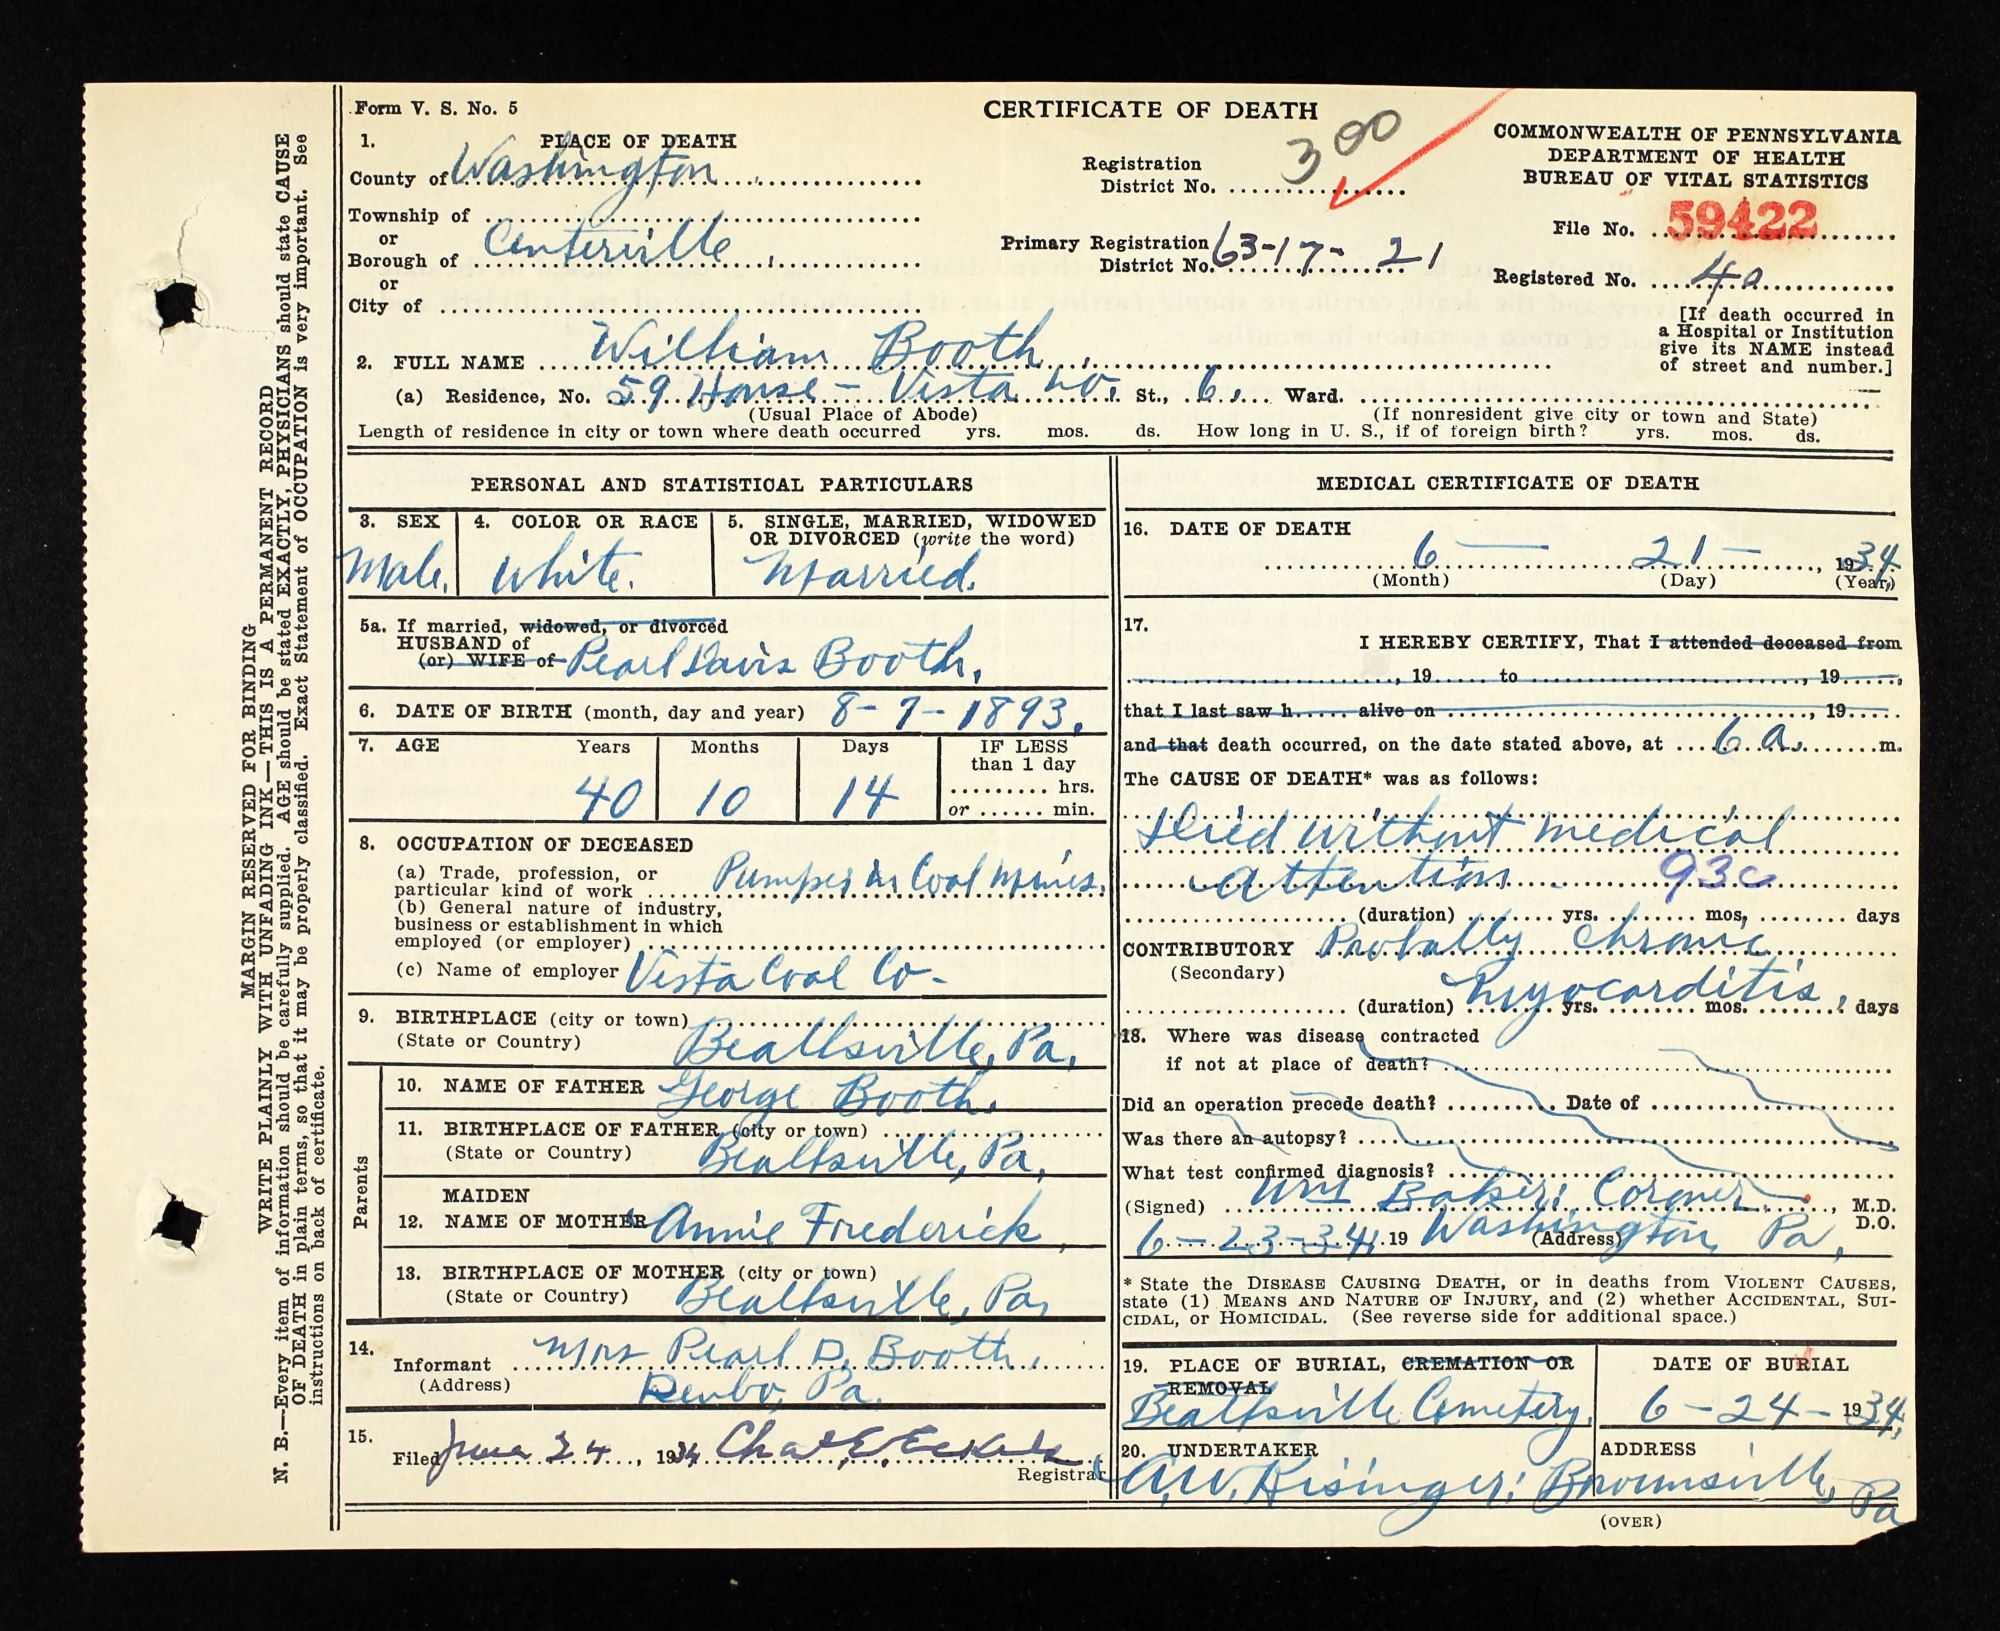 Form V. S. No. 5
CERTIFICATE OF DEATH
COMMONWEALTH OF PENNSYLVANIA
DEPARTMENT OF HEALTH
BUREAU OF VITAL STATISTICS
1. PLACE OF DEATH
County of Washington
Township of
or
Borough of Centerville
or
City of
Registration District No. 300
Primary Registration District No. 63-17-21
File No. 59422
Registered No. 40
[If death occurred in
a Hospital or Institution
give its NAME instead
of street and number.]
2. FULL NAME William Booth
(a) Residence, No. 59 House - Vista St., 6 Ward.
(Usual Place of Abode) (If nonresident give city or town and State)
Length of residence in city or town where death occurred yrs. mos. ds. How long in U. S., if of foreign birth? yrs. mos. ds.
PERSONAL AND STATISTICAL PARTICULARS
3. SEX
Male.
4. COLOR OR RACE
White.
5. SINGLE, MARRIED, WIDOWED
OR DIVORCED (write the word)
Married.
5a. If married, widowed, or divorced
HUSBAND of
(or) WIFE of Pearl Davis Booth,
6. DATE OF BIRTH (month, day and year) 8-7-1893.
7. AGE Years Months Days IF LESS
than 1 day
hrs.
or min.
40 10 14
8. OCCUPATION OF DECEASED
(a) Trade, profession, or
particular kind of work Pumper in Coal Mines.
(b) General nature of industry,
business or establishment in which
employed (or employer)
(c) Name of employer Vesta Coal Co-
9. BIRTHPLACE (city or town)
(State or Country) Beallsville, Pa.
Parents
10. NAME OF FATHER George Booth.
11. BIRTHPLACE OF FATHER (city or town)
(State or Country) Beallsville, Pa,
MAIDEN
12. NAME OF MOTHER Annie Frederick
13. BIRTHPLACE OF MOTHER (city or town)
(State or Country) Beallsville, Pa,
14.
Informant Mrs Pearl D. Booth,
(Address) Denbo, Pa.
15.
Filed June 24, 1934 Chas E. Registrar
MEDICAL CERTIFICATE OF DEATH
16. DATE OF DEATH
6 - 21 - 1934
(Month) (Day) (Year)
17.
I HEREBY CERTIFY, That I attended deceased from
, 19 to , 19 ,
that I last saw h alive on , 19
and that death occurred, on the date stated above, at 6 a. m.
The CAUSE OF DEATH* was as follows:
Died without medical
attention 93c
(duration) yrs. mos, days
CONTRIBUTORY Probally chronic
(Secondary)
myocarditis,
(duration) yrs. mos. days
18. Where was disease contracted
if not at place of death?
Did an operation precede death? Date of
Was there an autopsy?
What test confirmed diagnosis?
(Signed) Wm Baker; Coroner. , M.D.
D.O.
6-23-34, 19 Washington, Pa,
(Address)
* State the DISEASE CAUSING DEATH, or in deaths from VIOLENT CAUSES,
state (1) MEANS AND NATURE OF INJURY, and (2) whether ACCIDENTAL, SUI-
CIDAL, or HOMICIDAL. (See reverse side for additional space.)
19. PLACE OF BURIAL, CREMATION OR
REMOVAL
Beallsville Cemetery.
DATE OF BURIAL
6-24-1934,
20. UNDERTAKER
A.W. Kisinger;
ADDRESS
Brownsville, Pa
(OVER)
MARGIN RESERVED FOR BINDING
WRITE PLAINLY WITH UNFADING INK—THIS IS A PERMANENT RECORD
N. B.—Every item of information should be carefully supplied. AGE should be stated EXACTLY, PHYSICIANS should state CAUSE
OF DEATH in plain terms, so that it may be properly classified. Exact Statement of OCCUPATION is very important. See
instructions on back of certificate.